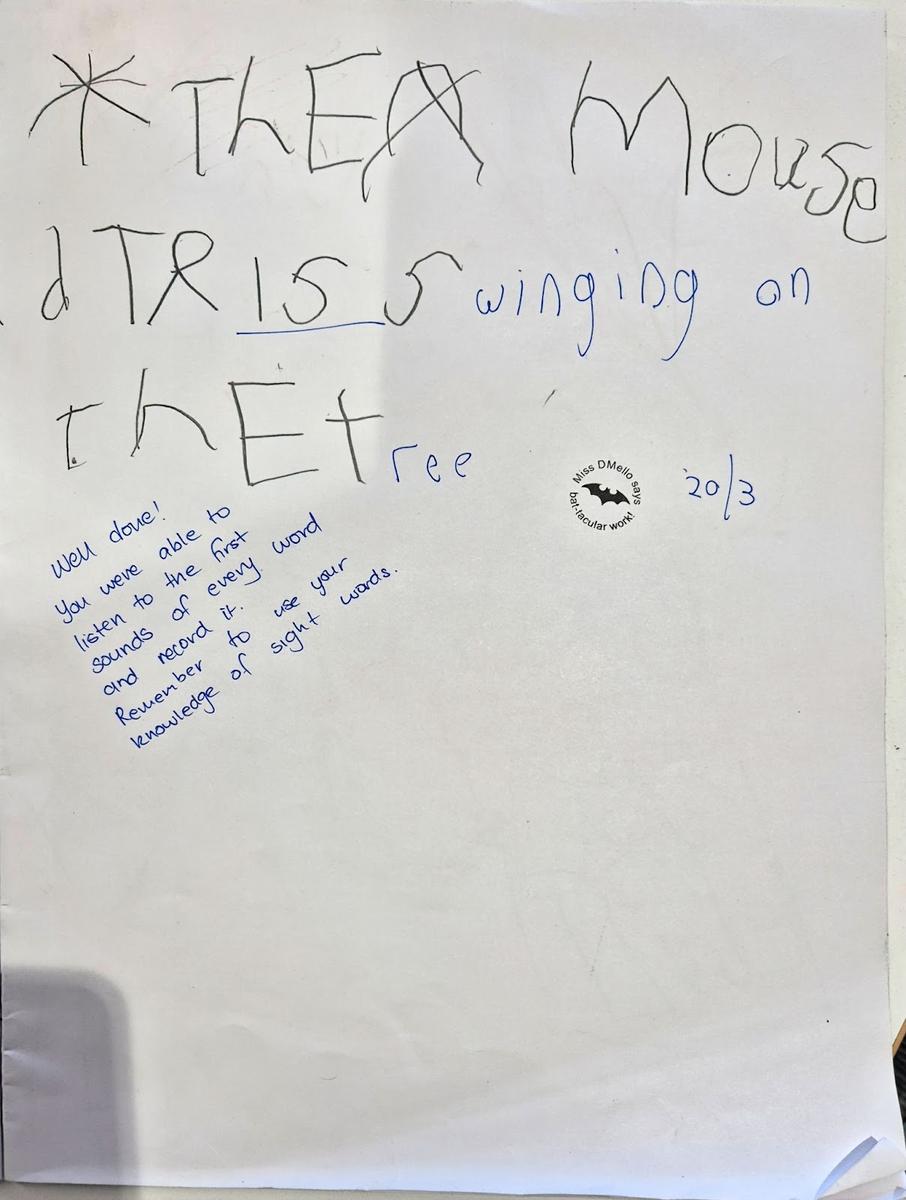 * ThE A MOUSe
d TR IS S winging on
thE t ree
Miss DMello says
bat-tacular work!
20/3
Well done!
You were able to
listen to the first
sounds of every word
and record it.
Remember to use your
knowledge of sight words.